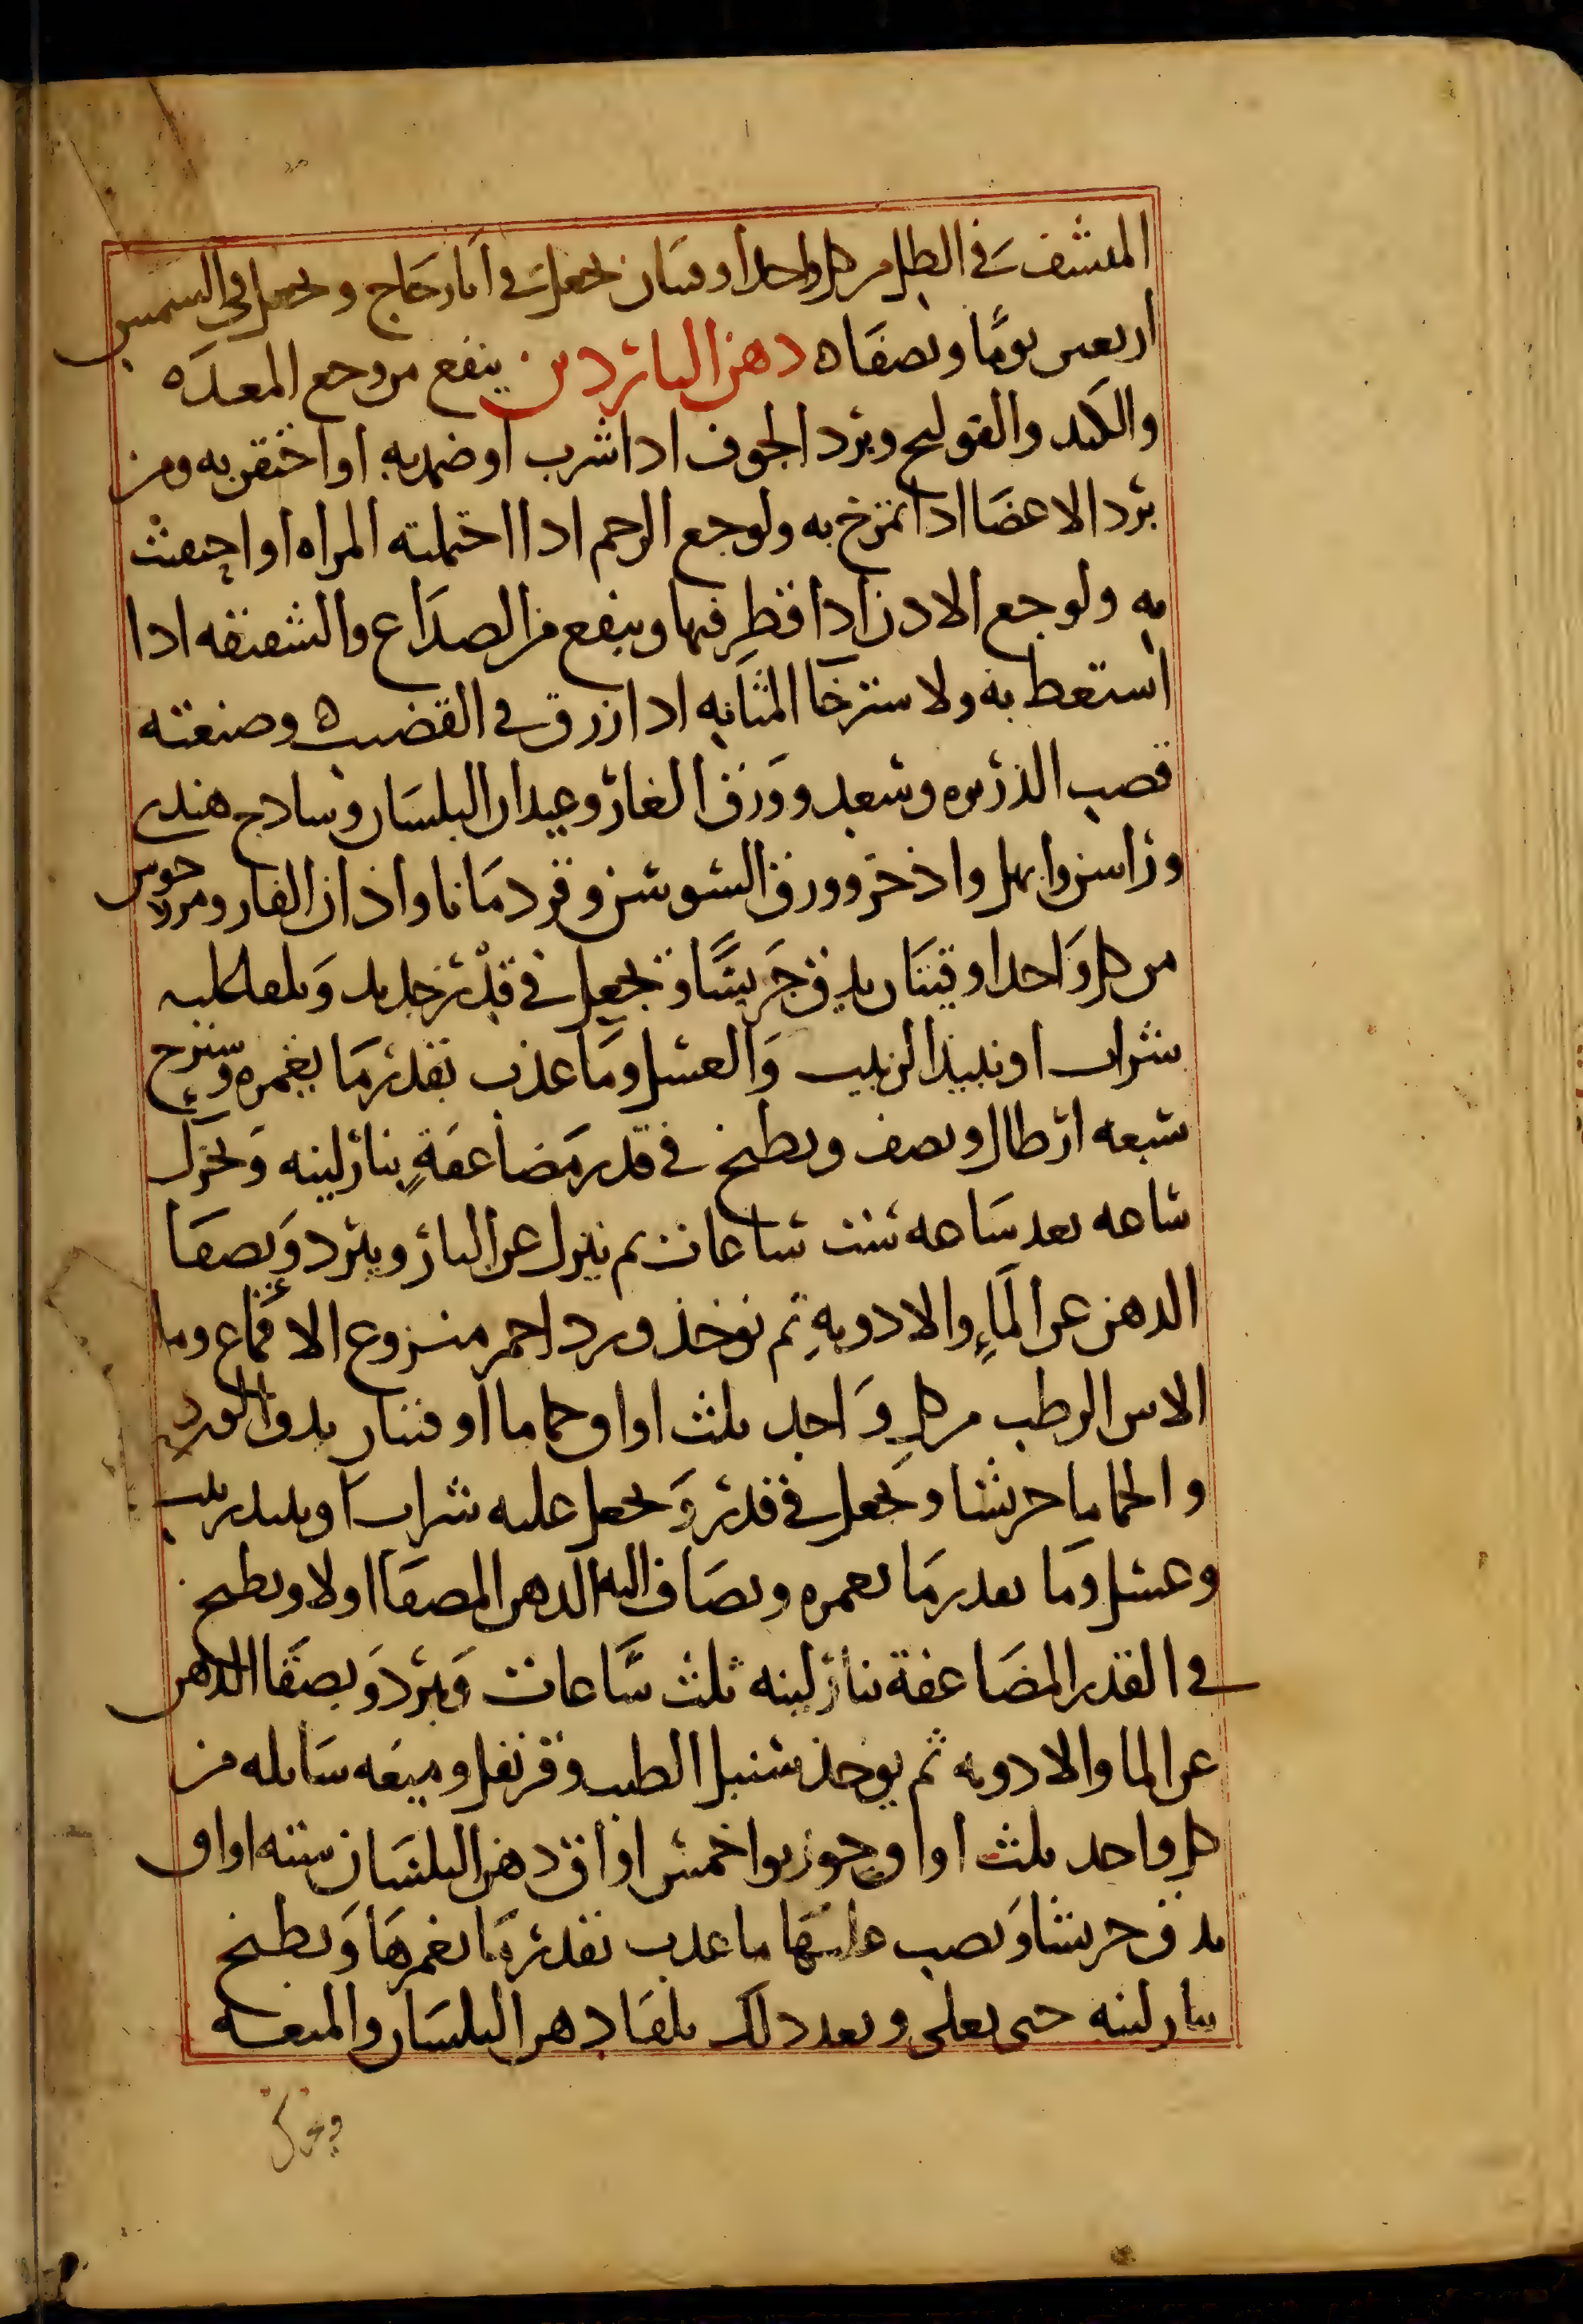 المنشف في الظل من كل واحد اوقيتان يجعل في انا زجاج ويجعل في الشمس
اربعين يوما ويصفا ه دهن الناردين ينفع من وجع المعده
والكبد والقولنج وبرد الجوف اذا شرب او ضمد به او احتقن به ومن
برد الاعضا اذا تمرخ به ولوجع الرحم اذا احتملته المراه او احتقنت
به ولوجع الاذن اذا قطر فيها وينفع من الصداع والشقيقه اذا
استعط به ولاسترخا المثانه اذا زرق في القضيب ه وصنعته
قصب الذريره وسعد وورق الغار وعيدان البلسان وساذج هندي
وراسن وابهل واذخر وورق السوسن وقردمانا واذان الفار ومرزجوس
من كل واحد اوقيتان يدق جريشا ويجعل في قدر جديد ويلقا عليه
شراب او نبيذ الزبيب والعسل وما عذب بقدر ما يغمره وسيرج
سبعه ارطال ونصف ويطبخ في قدر مضاعفة بنار لينه ويحرك
ساعه بعد ساعه ست ساعات ثم ينزل عن النار ويبرد ويصفا
الدهن عن الماء والادويه ثم يوخذ ورد احمر منزوع الاقماع وما
الاس الرطب من كل واحد ثلث اواق وحماما اوقيتان يدق الورد
والحماما جريشا ويجعل في قدر ويجعل عليه شراب او نبيذ زبيب
وعسل وما بقدر ما يغمره ويضاف اليه الدهن المصفا اولا ويطبخ
في القدر المضاعفة بنار لينه ثلث ساعات ويبرد ويصفا الدهن
عن الما والادويه ثم يوخذ سنبل الطيب وقرنفل وميعه سايله من
كل واحد ثلث اواق وجوز بوا خمس اواق دهن البلسان سته اواق
يدق جريشا ويصب عليها ما عذب بقدر ما يغمرها ويطبخ
بنار لينه حتى يغلى وبعد ذلك يلقا دهن البلسان والميعه
ويحرك